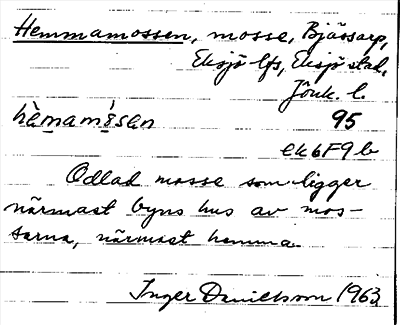 Hemmamossen, mosse, Bjässarp,
Eksjö lfs, Eksjö stad,
Jönk. l.
hèmam²åsen 95
ek6F9b
Odlad mosse som ligger
närmast byns hus av mos-
sarna, närmast hemma.
Inger Danielsson 1963